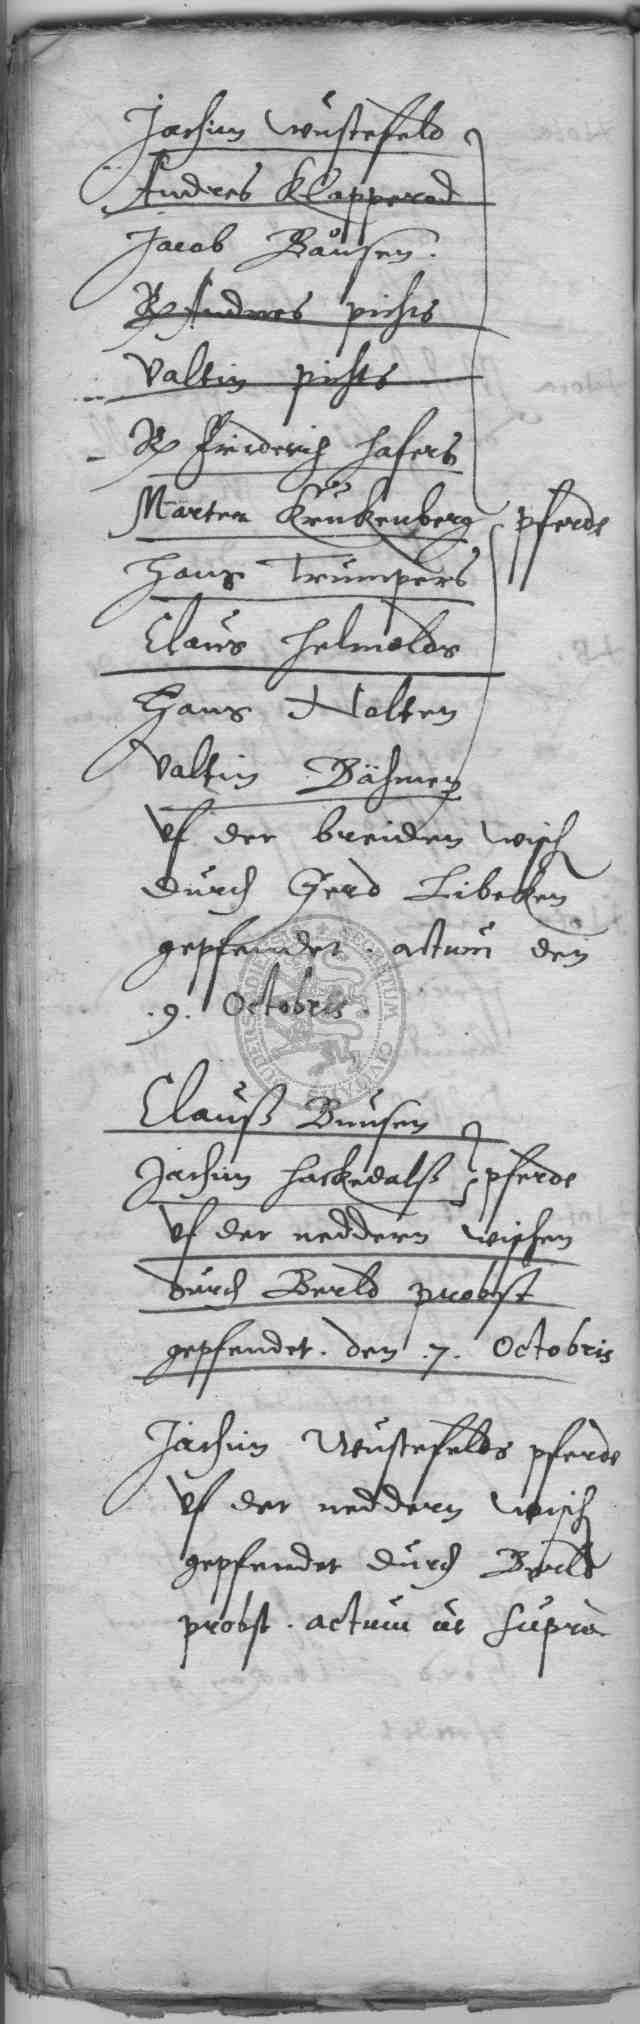 Jachim Wüstefeld
Andres Klapperod
Jacob Bausen.
Andres pichts
Valtin pichts
Friderich hafers
Marten Krukenberg pferde
Hans Trümpers
Claus Helmolds
Hans Nolten
Valtin Bähmen
vf der breiden wisch
durch Gerd Libeken
gepfendet. actum den
.9. Octobris.
Clauß Buusen
Jachim Hackedalß pferde
vf der neddern wischen
durch Berld probst
gepfendet. den .7. Octobris
Jachim Wüstefelds pferde
vf der neddern wisch
gepfendet durch Berld
probst. actum ut supra